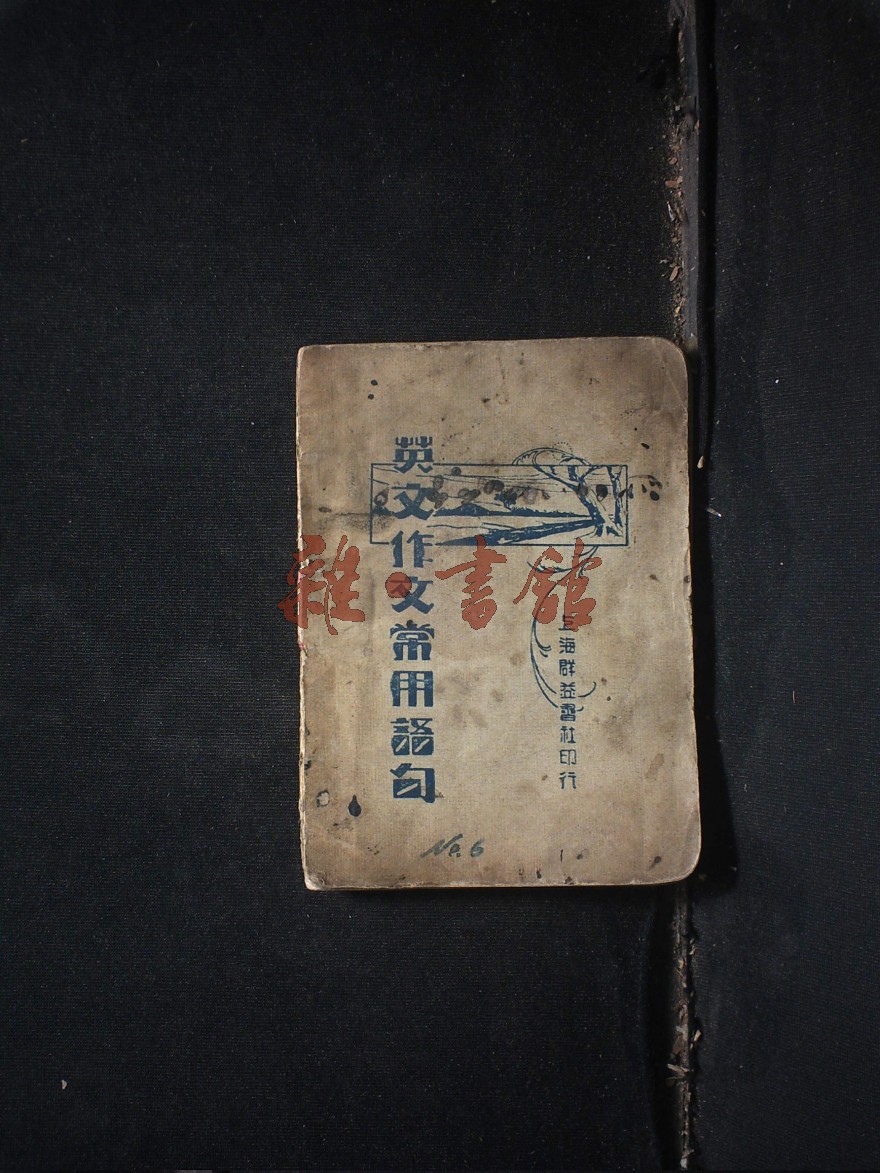 英文作文常用語句
上海群益書社印行
No. 6
雜·書館